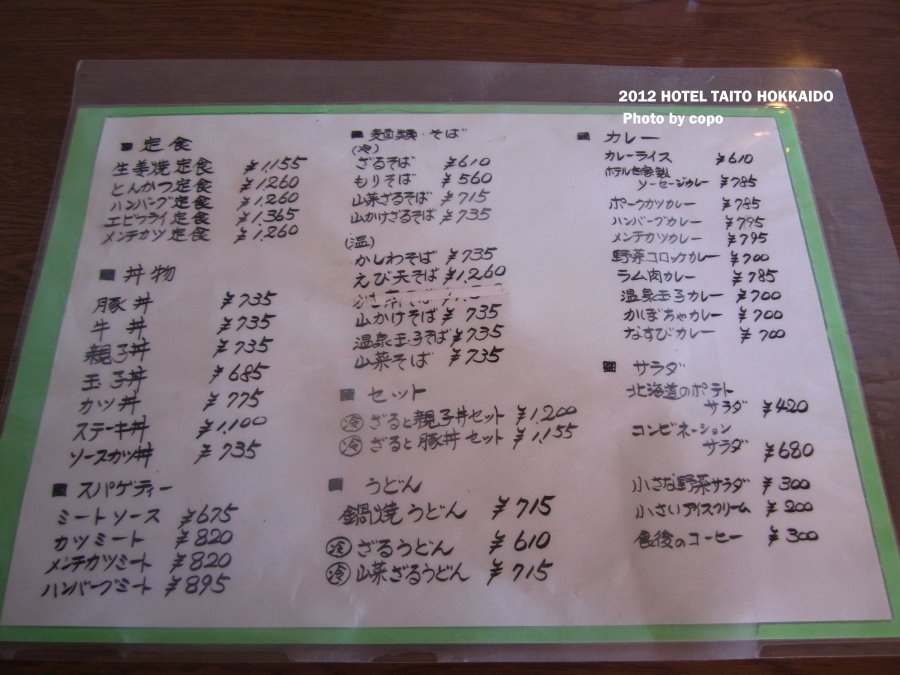 2012 HOTEL TAITO HOKKAIDO
Photo by copo
■ 定食
生姜焼定食 ¥1.155
とんかつ定食 ¥1.260
ハンバーグ定食 ¥1.260
エビフライ定食 ¥1.365
メンチカツ定食 ¥1.260
■ 丼物
豚丼 ¥735
牛丼 ¥735
親子丼 ¥735
玉子丼 ¥685
カツ丼 ¥775
ステーキ丼 ¥1.100
ソースカツ丼 ¥735
■ スパゲティー
ミートソース ¥675
カツミート ¥820
メンチカツミート ¥820
ハンバーグミート ¥895
■ 麺類・そば
(冷)
ざるそば ¥610
もりそば ¥560
山菜ざるそば ¥715
山かけざるそば ¥735
(温)
かしわそば ¥735
えび天そば ¥1.260
山かけそば ¥735
温泉玉子そば ¥735
山菜そば ¥735
■ セット
冷 ざると親子丼セット ¥1.200
冷 ざると豚丼セット ¥1.155
■ うどん
鍋焼うどん ¥715
冷 ざるうどん ¥610
冷 山菜ざるうどん ¥715
■ カレー
カレーライス ¥610
ホテル自家製
ソーセージカレー ¥785
ポークカツカレー ¥785
ハンバーグカレー ¥795
メンチカツカレー ¥795
野菜コロッケカレー ¥700
ラム肉カレー ¥785
温泉玉子カレー ¥700
かぼちゃカレー ¥700
なすびカレー ¥700
■ サラダ
北海道のポテト
サラダ ¥420
コンビネーション
サラダ ¥680
小さな野菜サラダ ¥300
小さいアイスクリーム ¥200
食後のコーヒー ¥300